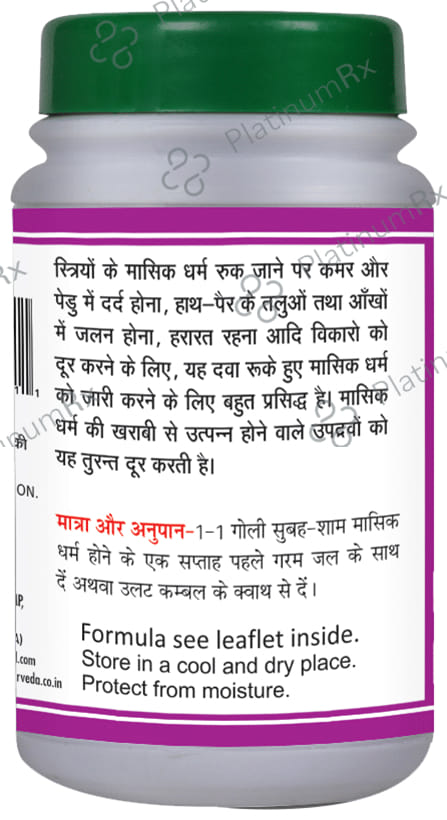 स्त्रियों के मासिक धर्म रुक जाने पर कमर और
पेडु में दर्द होना, हाथ–पैर के तलुओं तथा आँखों
में जलन होना, हरारत रहना आदि विकारो को
दूर करने के लिए, यह दवा रूके हुए मासिक धर्म
को जारी करने के लिए बहुत प्रसिद्ध है। मासिक
धर्म की खराबी से उत्पन्न होने वाले उपद्रवों को
यह तुरन्त दूर करती है।
मात्रा और अनुपान-1-1 गोली सुबह-शाम मासिक
धर्म होने के एक सप्ताह पहले गरम जल के साथ
दें अथवा उलट कम्बल के क्वाथ से दें।
Formula see leaflet inside.
Store in a cool and dry place.
Protect from moisture.
1 1
की
ON.
.com
rveda.co.in
PlatinumRx
PlatinumRx